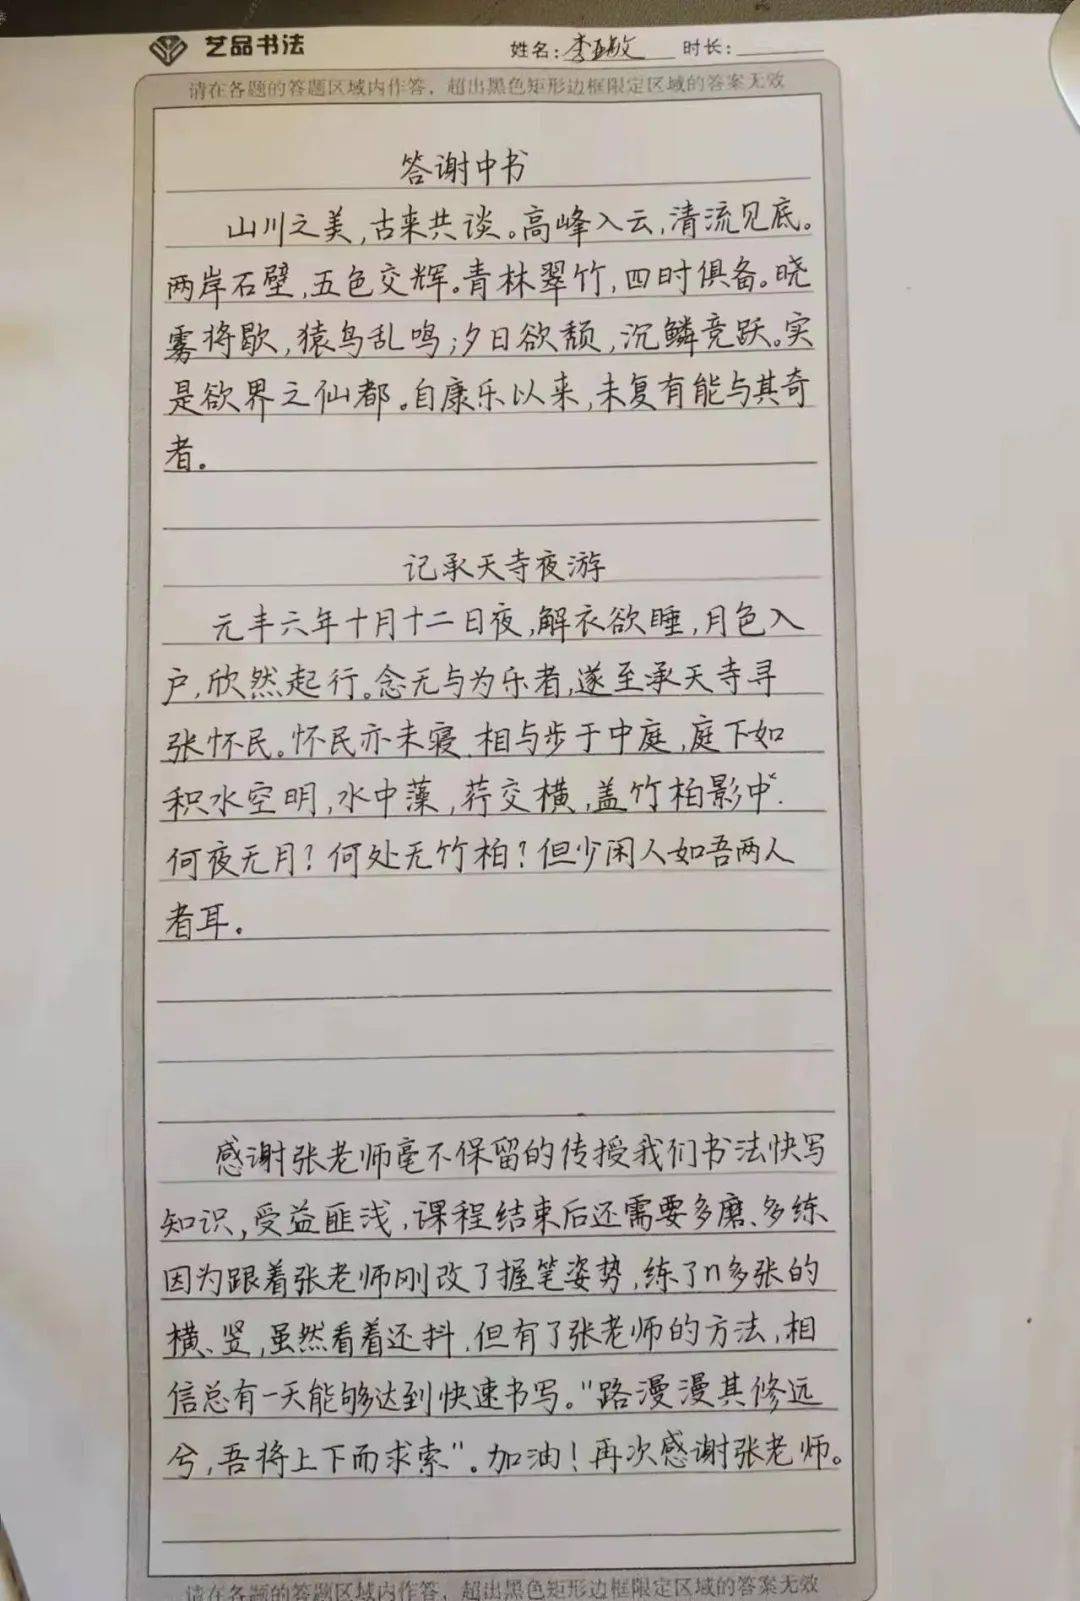 艺品书法 姓名: 李敏 时长:
请在各题的答题区域内作答，超出黑色矩形边框限定区域的答案无效
答谢中书
山川之美,古来共谈。高峰入云,清流见底。
两岸石壁,五色交辉。青林翠竹,四时俱备。晓
雾将歇,猿鸟乱鸣;夕日欲颓,沉鳞竞跃。实
是欲界之仙都。自康乐以来,未复有能与其奇
者。
记承天寺夜游
元丰六年十月十二日夜,解衣欲睡,月色入
户,欣然起行。念无与为乐者,遂至承天寺寻
张怀民。怀民亦未寝,相与步于中庭,庭下如
积水空明,水中藻,荇交横,盖竹柏影中.
何夜无月?何处无竹柏?但少闲人如吾两人
者耳。
感谢张老师毫不保留的传授我们书法快写
知识,受益匪浅,课程结束后还需要多磨、多练
因为跟着张老师刚改了握笔姿势,练了n多张的
横、竖,虽然看着还抖,但有了张老师的方法,相
信总有一天能够达到快速书写。"路漫漫其修远
兮,吾将上下而求索"。加油!再次感谢张老师。
请在各题的答题区域内作答，超出黑色矩形边框限定区域的答案无效